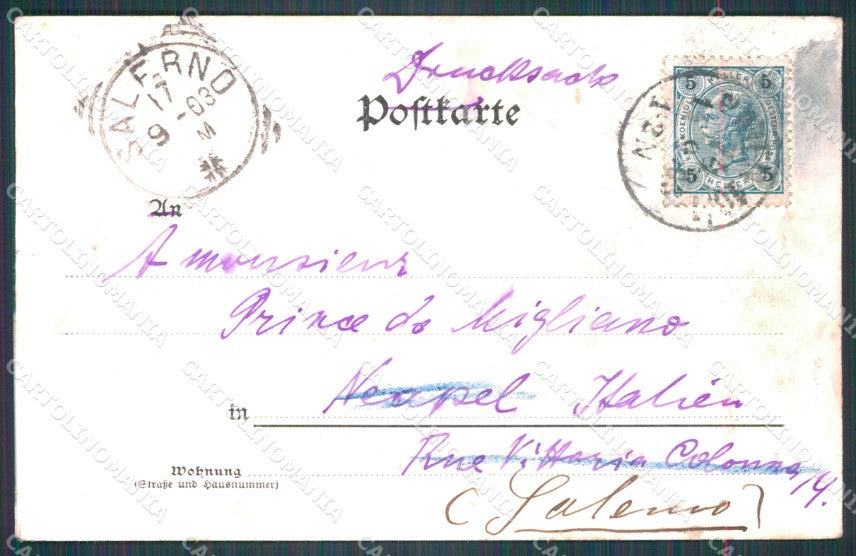 Drucksach
Postkarte
SALERNO
17
9 - 03
M
5 HELLER 5
5 HELLER 5
An
A monsieur
Prince de Migliano
in Neapel Italien
Rue Vittoria Colonna 14.
Wohnung
(Straße und Hausnummer)
(Salerno)
CARTOLINOMANIA